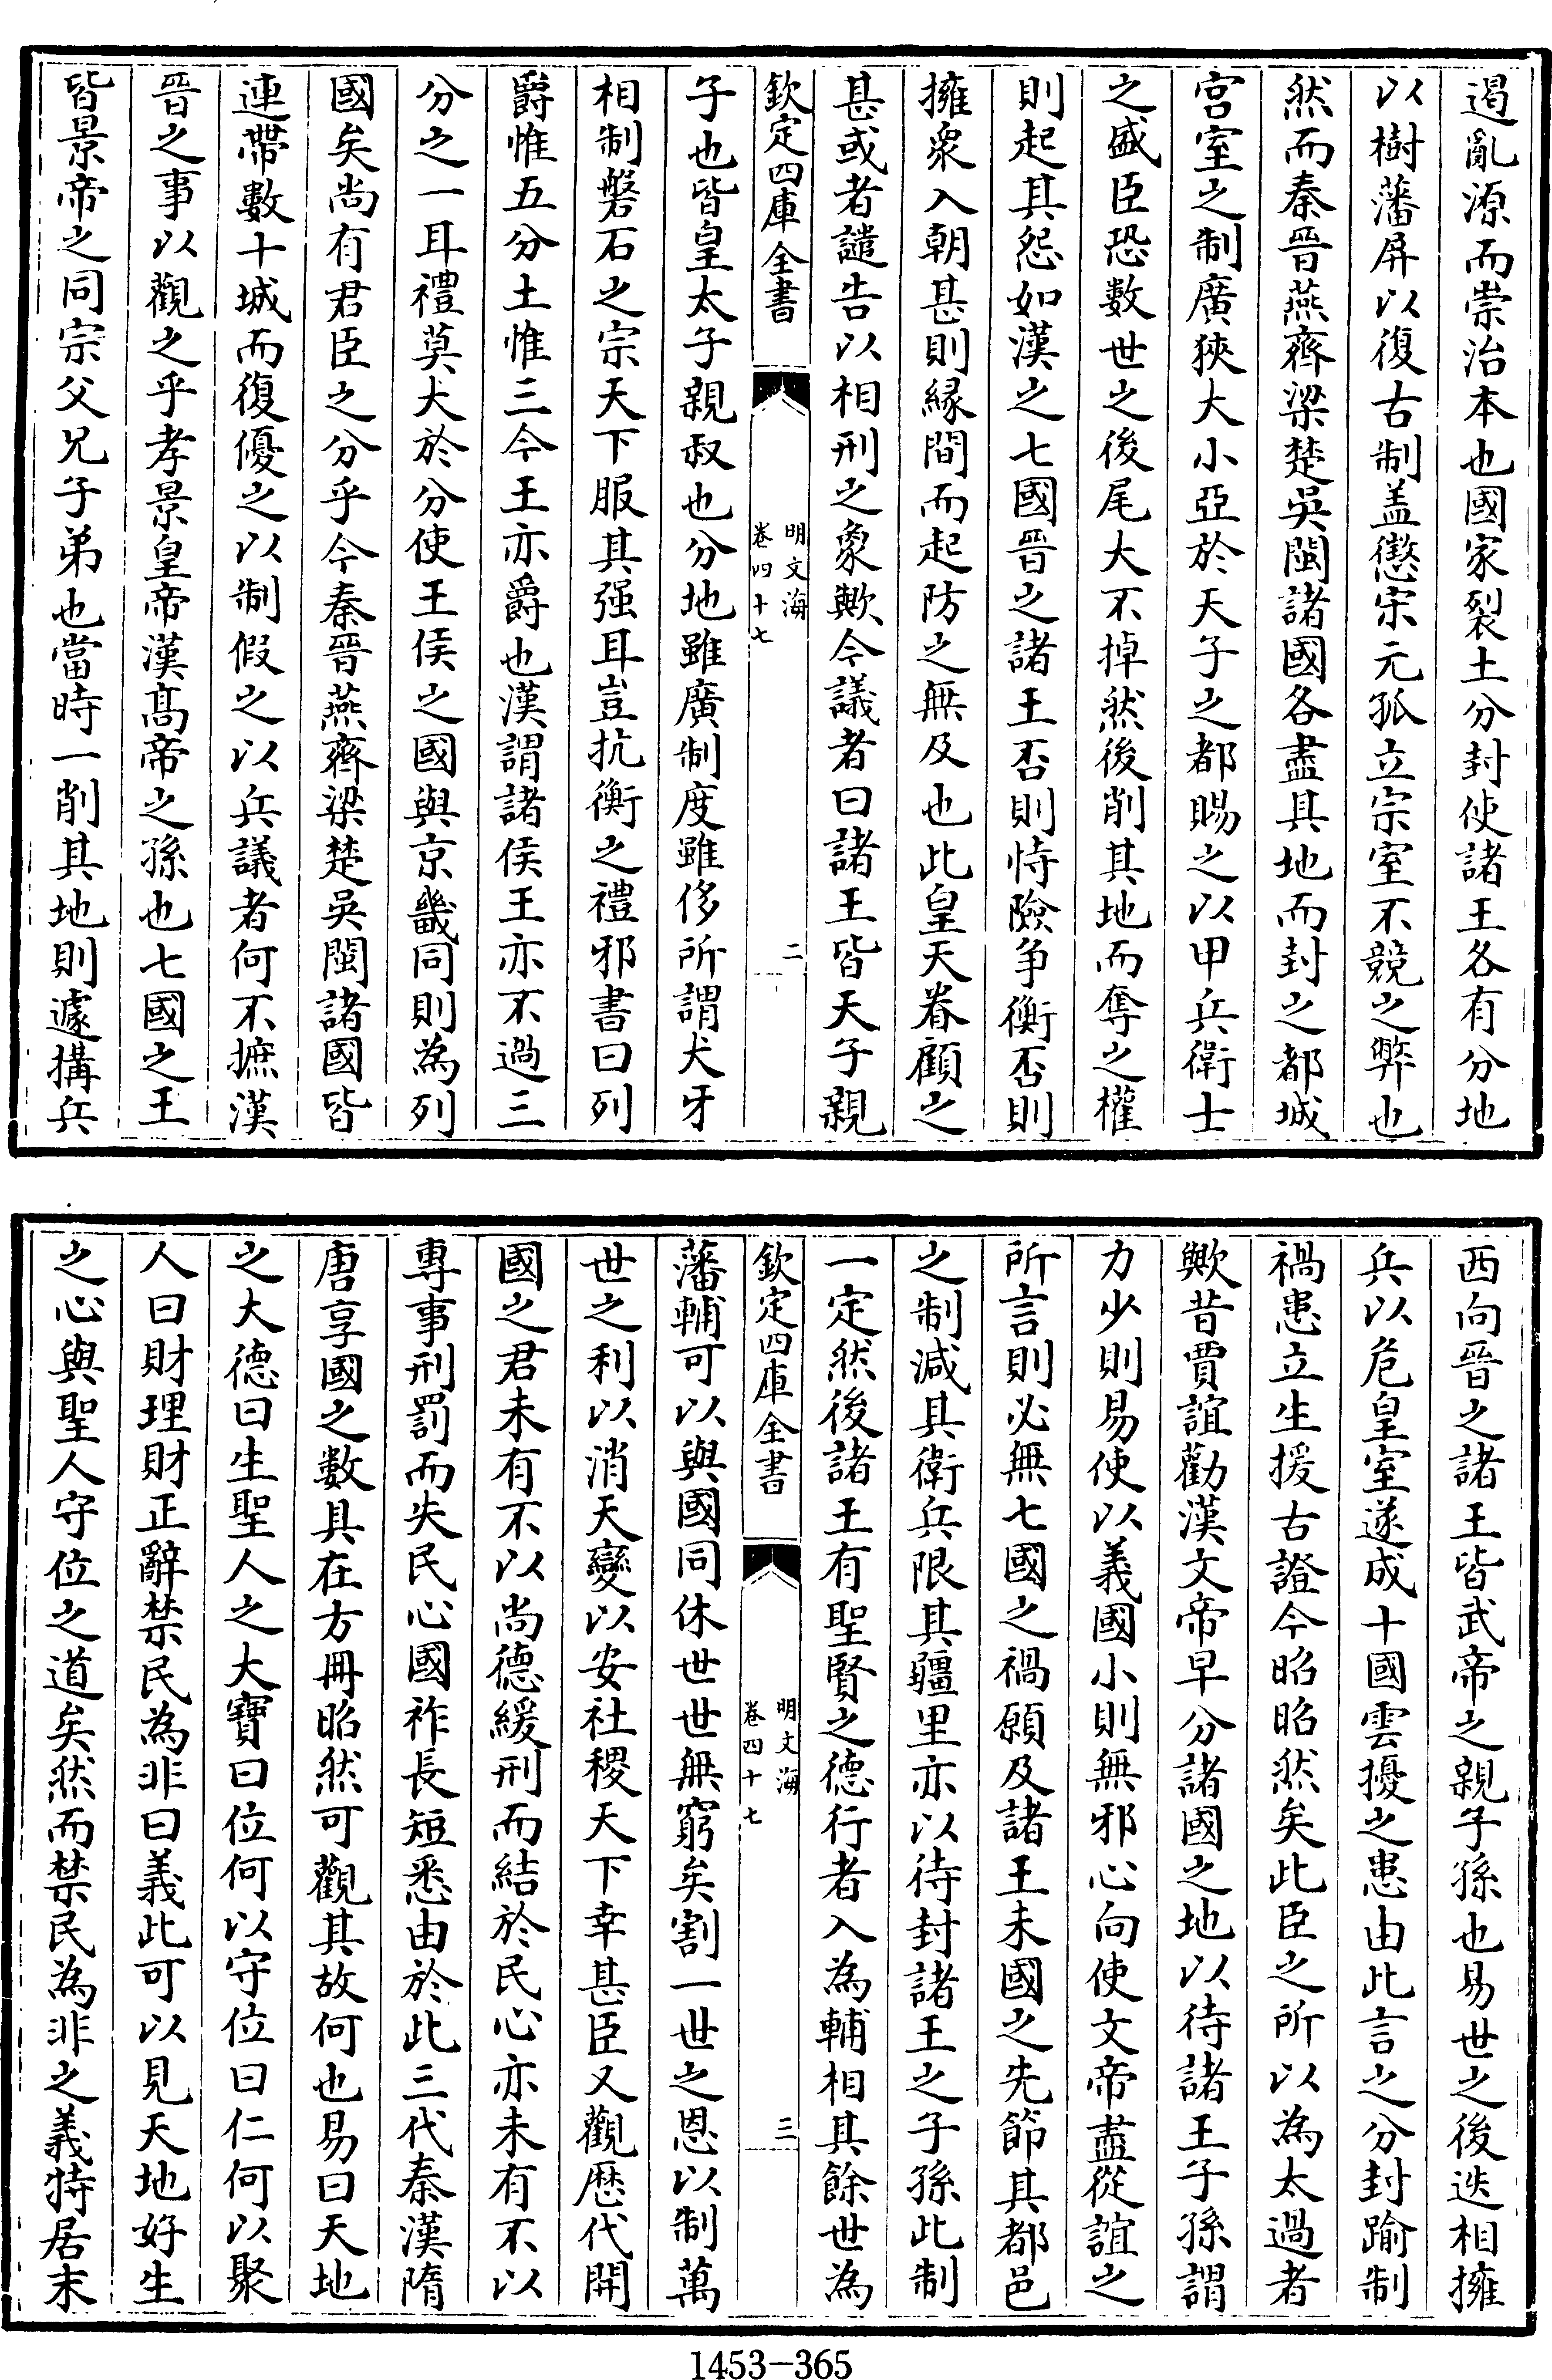 遏亂源而崇治本也國家裂土分封使諸王各有分地
以樹藩屏以復古制盖懲宋元孤立宗室不競之弊也
然而秦晉燕齊梁楚吳閩諸國各盡其地而封之都城
宫室之制廣狹大小亞於天子之都賜之以甲兵衛士
之盛臣恐數世之後尾大不掉然後削其地而奪之權
則起其怨如漢之七國晉之諸王否則恃險爭衡否則
擁衆入朝甚則緣間而起防之無及也此皇天眷顧之
甚或者譴告以相刑之象歟今議者曰諸王皆天子親
欽定四庫全書
明文海
卷四十七
二
子也皆皇太子親叔也分地雖廣制度雖侈所謂犬牙
相制磐石之宗天下服其强耳豈抗衡之禮邪書曰列
爵惟五分土惟三今王亦爵也漢謂諸侯王亦不過三
分之一耳禮莫大於分使王侯之國與京畿同則為列
國矣尚有君臣之分乎今秦晉燕齊梁楚吳閩諸國皆
連帶數十城而復優之以制假之以兵議者何不摭漢
晉之事以觀之乎孝景皇帝漢髙帝之孫也七國之王
皆景帝之同宗父兄子弟也當時一削其地則遽搆兵
西向晉之諸王皆武帝之親子孫也易世之後迭相擁
兵以危皇室遂成十國雲擾之患由此言之分封踰制
禍患立生援古證今昭昭然矣此臣之所以為太過者
歟昔賈誼勸漢文帝早分諸國之地以待諸王子孫謂
力少則易使以義國小則無邪心向使文帝盡從誼之
所言則必無七國之禍願及諸王未國之先節其都邑
之制減其衛兵限其疆里亦以待封諸王之子孫此制
一定然後諸王有聖賢之德行者入為輔相其餘世為
欽定四庫全書
明文海
卷四十七
三
藩輔可以與國同休世世無窮矣割一世之恩以制萬
世之利以消天變以安社稷天下幸甚臣又觀歷代開
國之君未有不以尚德緩刑而結於民心亦未有不以
專事刑罰而失民心國祚長短悉由於此三代秦漢隋
唐享國之數具在方冊昭然可觀其故何也易曰天地
之大德曰生聖人之大寶曰位何以守位曰仁何以聚
人曰財理財正辭禁民為非曰義此可以見天地好生
之心與聖人守位之道矣然而禁民為非之義特居末
1453-365